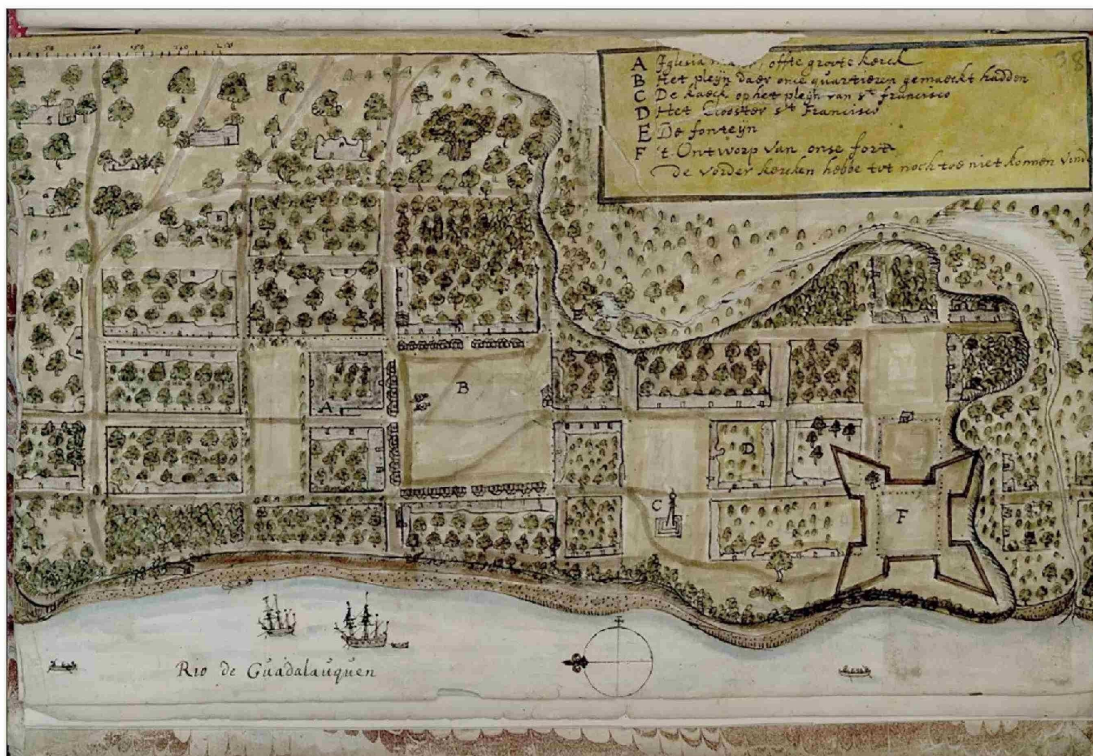 50 100 150 200 250
38
A Iglesia offte groote kerck
B Het pleijn daer onse quartieren gemaeckt hadden
C De kaeck op het pleijn van St Francisco
D Het Clooster St Francisco
E De fonteijn
F 't Ontworp van onse fort
De vorder kercken hebbe tot noch toe niet konnen
A
B
C
D
F
Rio de Guadalauquen